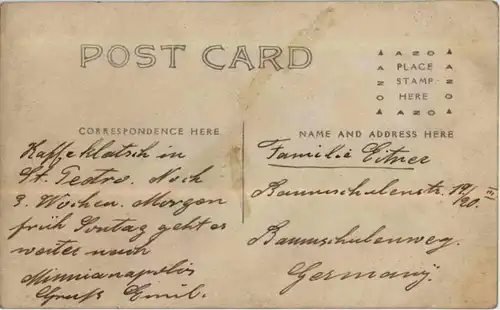 POST CARD
AZO
PLACE
STAMP
HERE
AZO
CORRESPONDENCE HERE
Kaffeklatsch in
St. Pedro. Noch
3. Wochen. Morgen
früh Sontag geht es
weiter nach
Minnianapolis
Gruß Emil.
NAME AND ADDRESS HERE
Familie Eitner
Baumschulenstr. 19/20.
Baumschulenweg.
Germany.